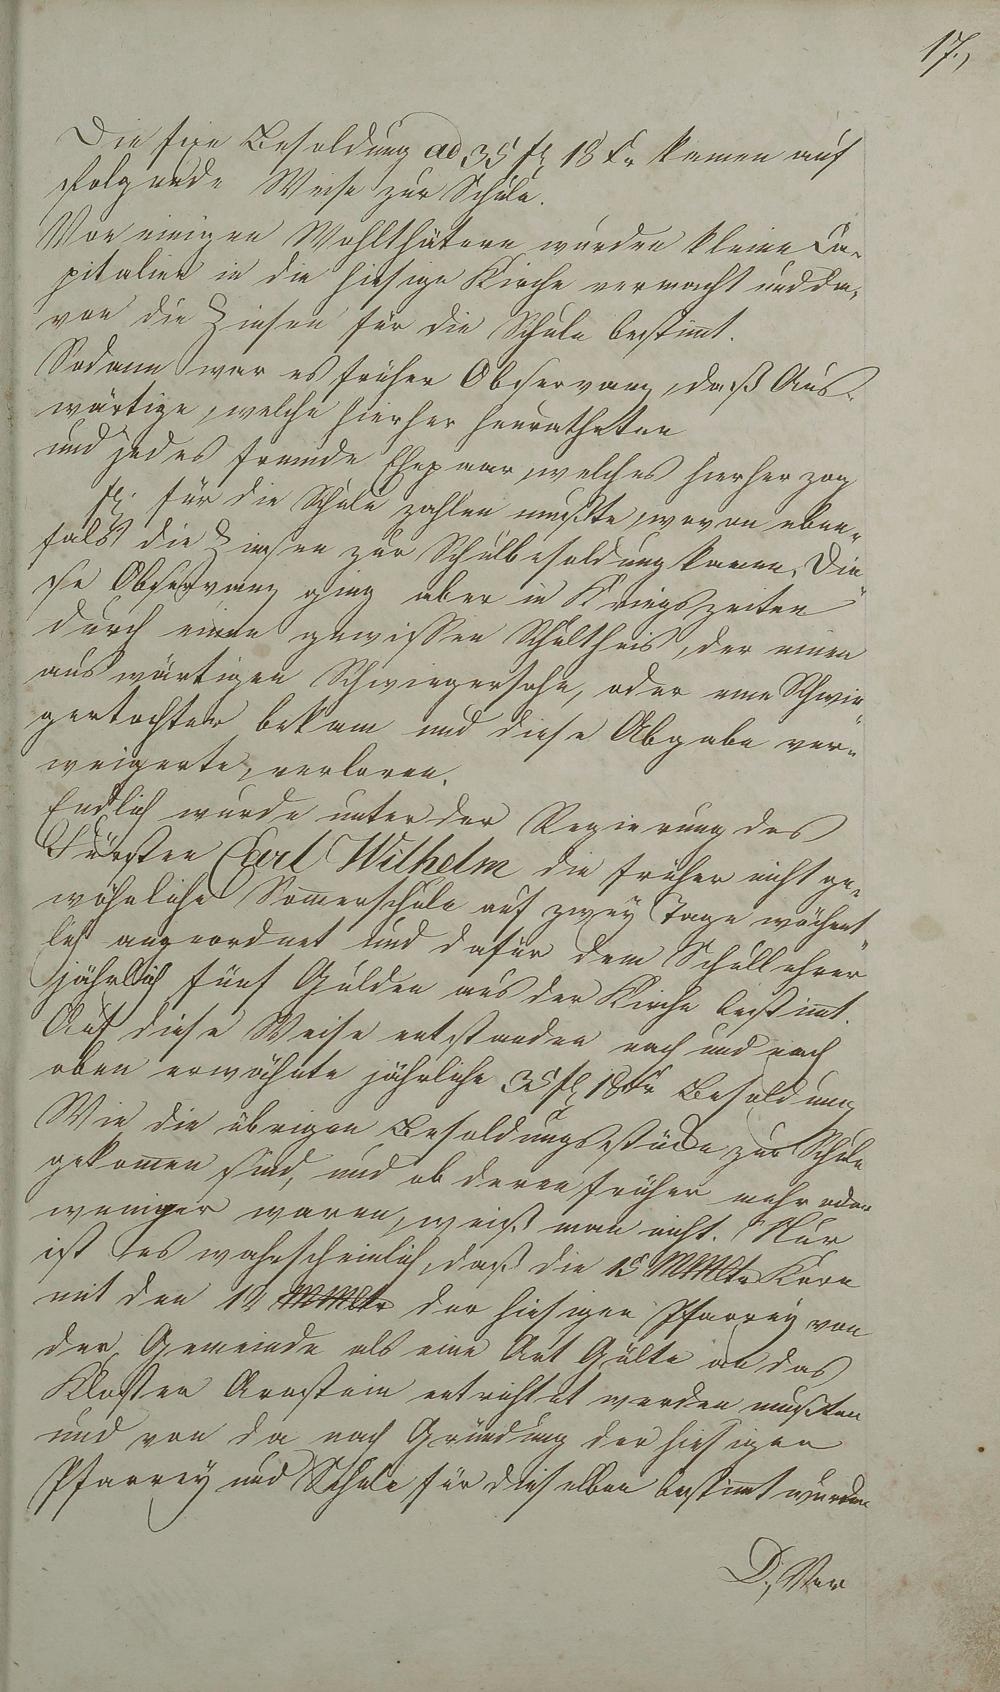 17.,
Die fixe Besoldung ad 35 fl 18 Xr kamen auf
folgende Weise zur Schule.
Von einigen Wohlthätern wurden kleine Ca-
pitalien in die hiesige Kirche vermacht und da-
von die Zinsen für die Schule bestimt.
Sodann war es früher Observanz, daß Aus-
wärtige, welche hierher heuratheten
und jedes fremde Ehepaar, welches hierher zog
fl. für die Schule zahlen mußte, wovon eben-
fals die Zinsen zur Schulbesoldung kamen. Die-
se Observanz ging aber in Kriegszeiten
durch einen gewissen Schultheis, der einen
auswärtigen Schwiegersohn, oder eine Schwie-
gertochter bekam und diese Abgabe ver-
weigerte, verloren.
Endlich wurde unter der Regierung des
Fürsten Carl Wilhelm die früher nicht ge-
wöhnliche Somerschule auf zwey Tage wöchent-
lich angeordnet und dafür dem Schullehrer
jährlich fünf Gulden aus der Kirche bestimt.
Auf diese Weise entstanden nach und nach
oben erwähnte jährliche 35 fl 18 Xr Besoldung
Wie die übrigen Besoldungsstücke zur Schule
gekomen sind, und ob deren früher mehr oder
weniger waren, weiß man nicht. Nur
ist es wahrscheinlich, daß die 15 Korn
mit den der hiesigen Pfarrey von
der Gemeinde als eine Art Gülte an das
Kloster Arnstein entrichtet werden mußten
und von da nach Gründung der hiesigen
Pfarrey und Schule für dieselben bestimt wurden
D., Von